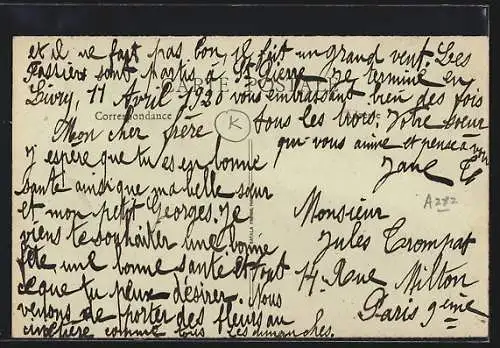 et il ne fait pas bon il fait un grand vent. Les
sont partis à St Pierre je termine en
CARTE POSTALE
vous embrassant bien des fois
Livry, 11 Avril 1920
Correspondance
tous les trois. Votre soeur
qui vous aime et pense à vous
Jane T
K
Mon cher frère
J espère que tu es en bonne
santé ainsi que ma belle sœur
et mon petit Georges. Je
viens te souhaiter une bonne
fête une bonne santé et tout
ce que tu peux désirer. Nous
venons de porter des fleurs au
cimetière comme tous les dimanches.
A282
Monsieur
Jules Trompat
14 Rue Milton
Paris 9eme